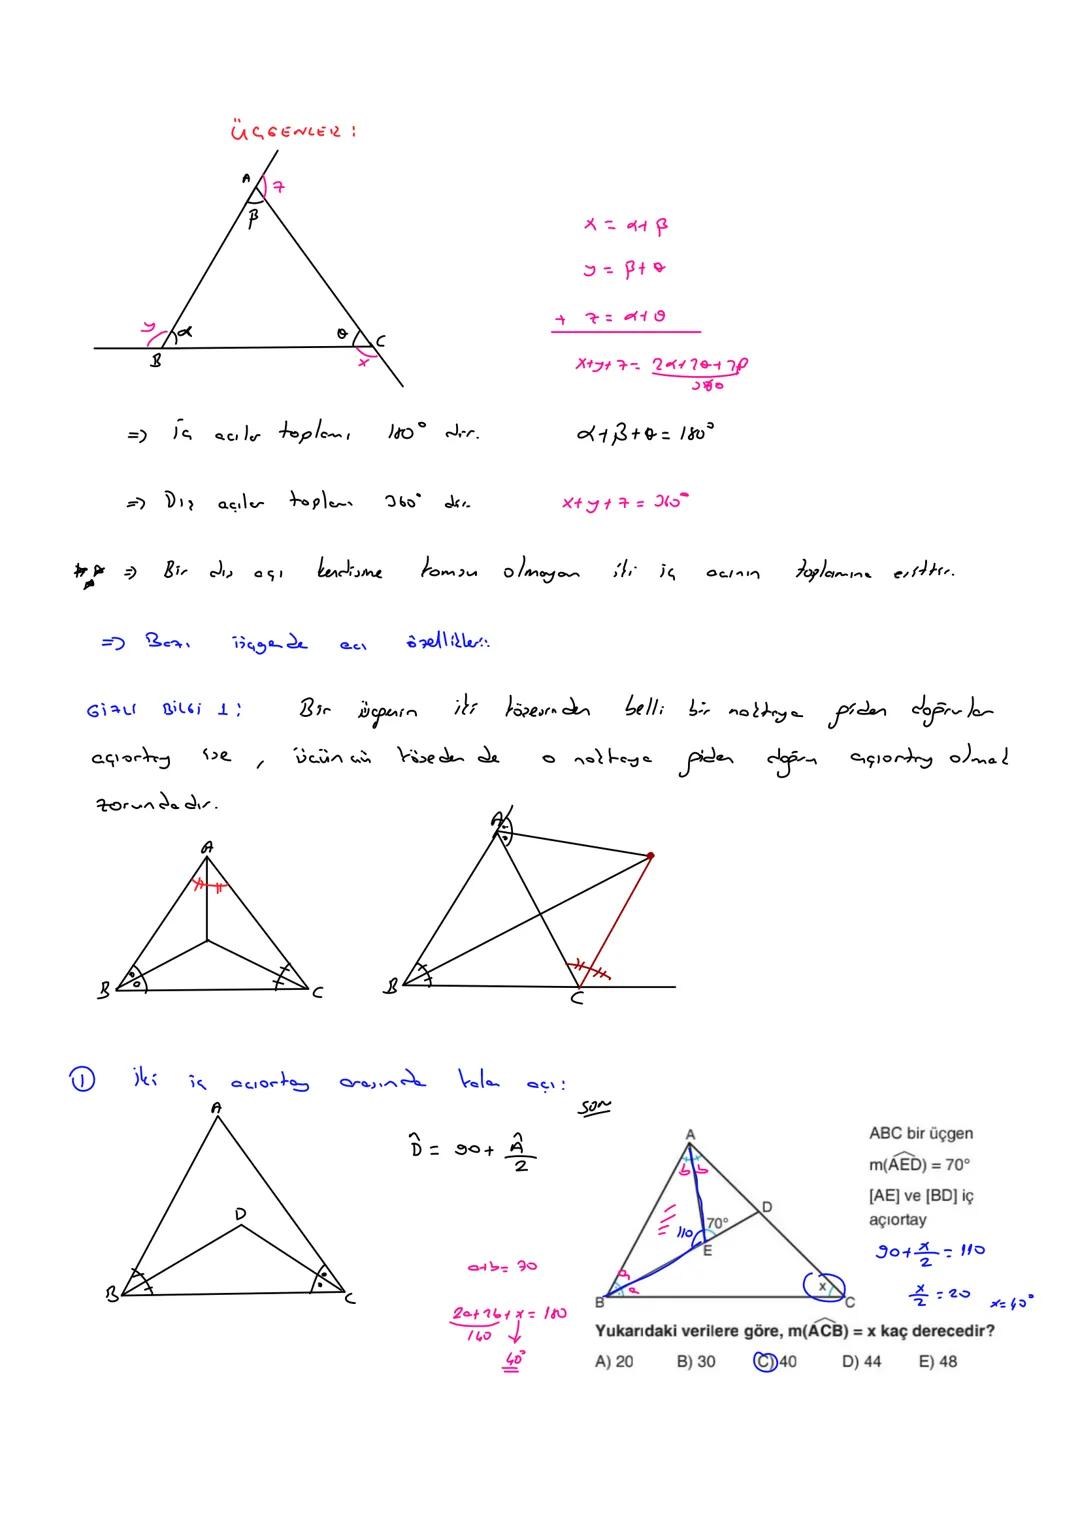 ÜÇGENLER :
A
z
β
x = α+β
y = β+θ
+ z = α+θ
x+y+z = 2α+2θ+2β
360
y
α
θ
C
B
x
=> İç açılar toplamı 180° dir.
α+β+θ = 180°
=> Dış açılar toplamı 360° dir.
x+y+z = 360°
=> Bir dış açı kendisine komşu olmayan iki iç açının toplamına eşittir.
=> Bazı üçgende açı özellikleri:
GİZLİ BİLGİ 1: Bir üçgenin iki köşesinden belli bir noktaya giden doğrular
açıortay ise, üçüncü köşeden de o noktaya giden doğru açıortay olmak
zorundadır.
A
B
C
A
B
C
① İki iç açıortay arasında kalan açı:
A
D
B
C
D̂ = 90 + Â/2
SORU
a+b = 70
2a+2b+x = 180
140
40°
A
b b
D
110
70°
E
a
a
B
x
C
ABC bir üçgen
m(AED) = 70°
[AE] ve [BD] iç
açıortay
90+x/2 = 110
x/2 = 20 x=40°
Yukarıdaki verilere göre, m(ACB) = x kaç derecedir?
A) 20 B) 30 C) 40 D) 44 E) 48